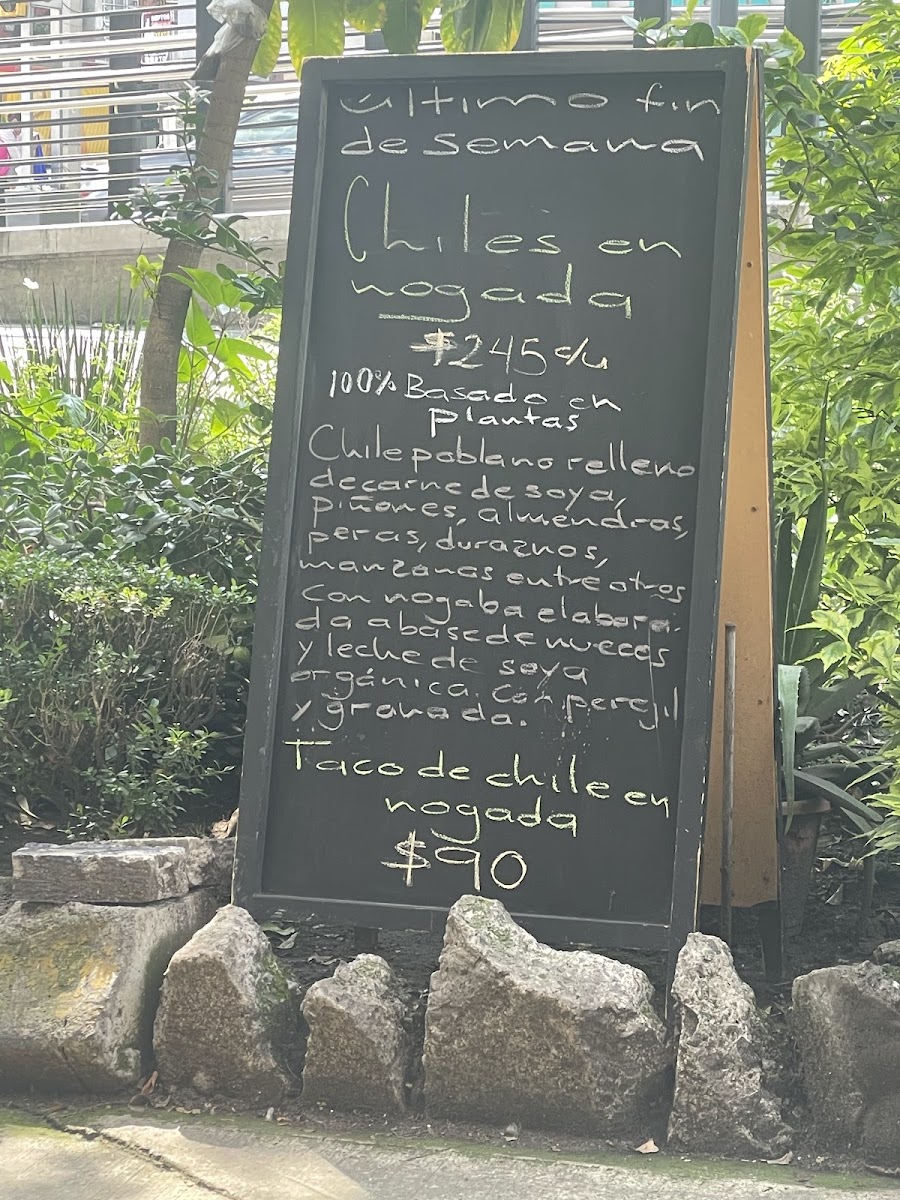 último fin
de semana
Chiles en
nogada
$245 c/u
100% Basado en
plantas
Chile poblano relleno
de carne de soya,
piñones, almendras,
peras, duraznos,
manzanas entre otros
Con nogaba elabora-
da a base de nueces
y leche de soya
orgánica. Con perejil
y granada.
Taco de chile en
nogada
$90